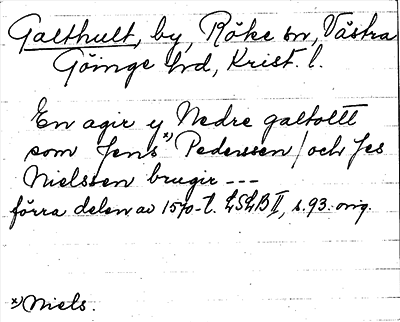 Galthult, by, Röke sn, Västra
Göinge hd, Krist. l.
En agir y Nedre galtoltt
som Jens *) Pederssen / och Jes
Nielssen brugir ---
förra delen av 1570-t. LSLB II, s. 93. orig.
*) Niels.